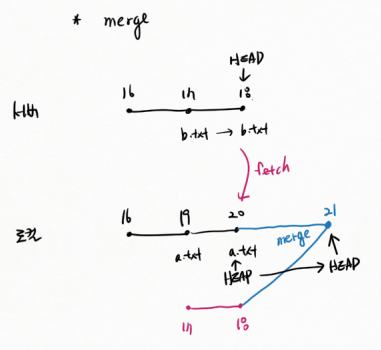 * merge
HEAD
16 17 18
서버
b.txt → b.txt
fetch
16 19 20 21
로컬
merge
a.txt a.txt
HEAD HEAD
17 18